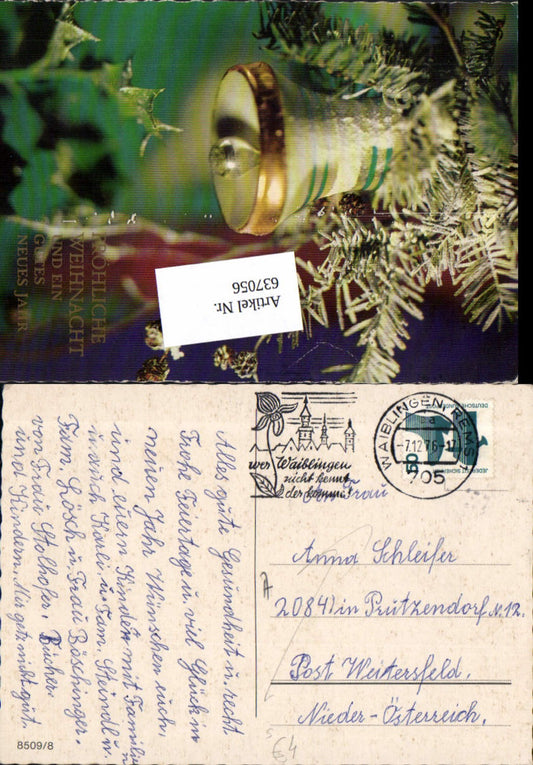 FRÖHLICHE
WEIHNACHT
UND EIN
GUTES
NEUES JAHR
Artikel Nr.
637056
Alles gute Gesundheit u. recht
Frohe Feiertage u. viel Glück im
neuen Jahr Wünschen euch,
und euern Kindern mit Familien
u. auch Karli u. Fam. Steindl u.
Fam. Löxh u. Frau Böschinger.
von Frau Stolhofer. Bücher.
und Kindern. Mir gehts nicht gut.
8509/8
wer Waiblingen
nicht kennt
der kommt
WAIBLINGEN, REMS
-7.12.76-17
705
DEUTSCHE BUNDESPOST
JEDERZEIT SICHERHEIT
50
An Frau
Anna Schleifer
2084) in Prutzendorf N. 12.
Post Weitersfeld.
Nieder-Österreich.
€4